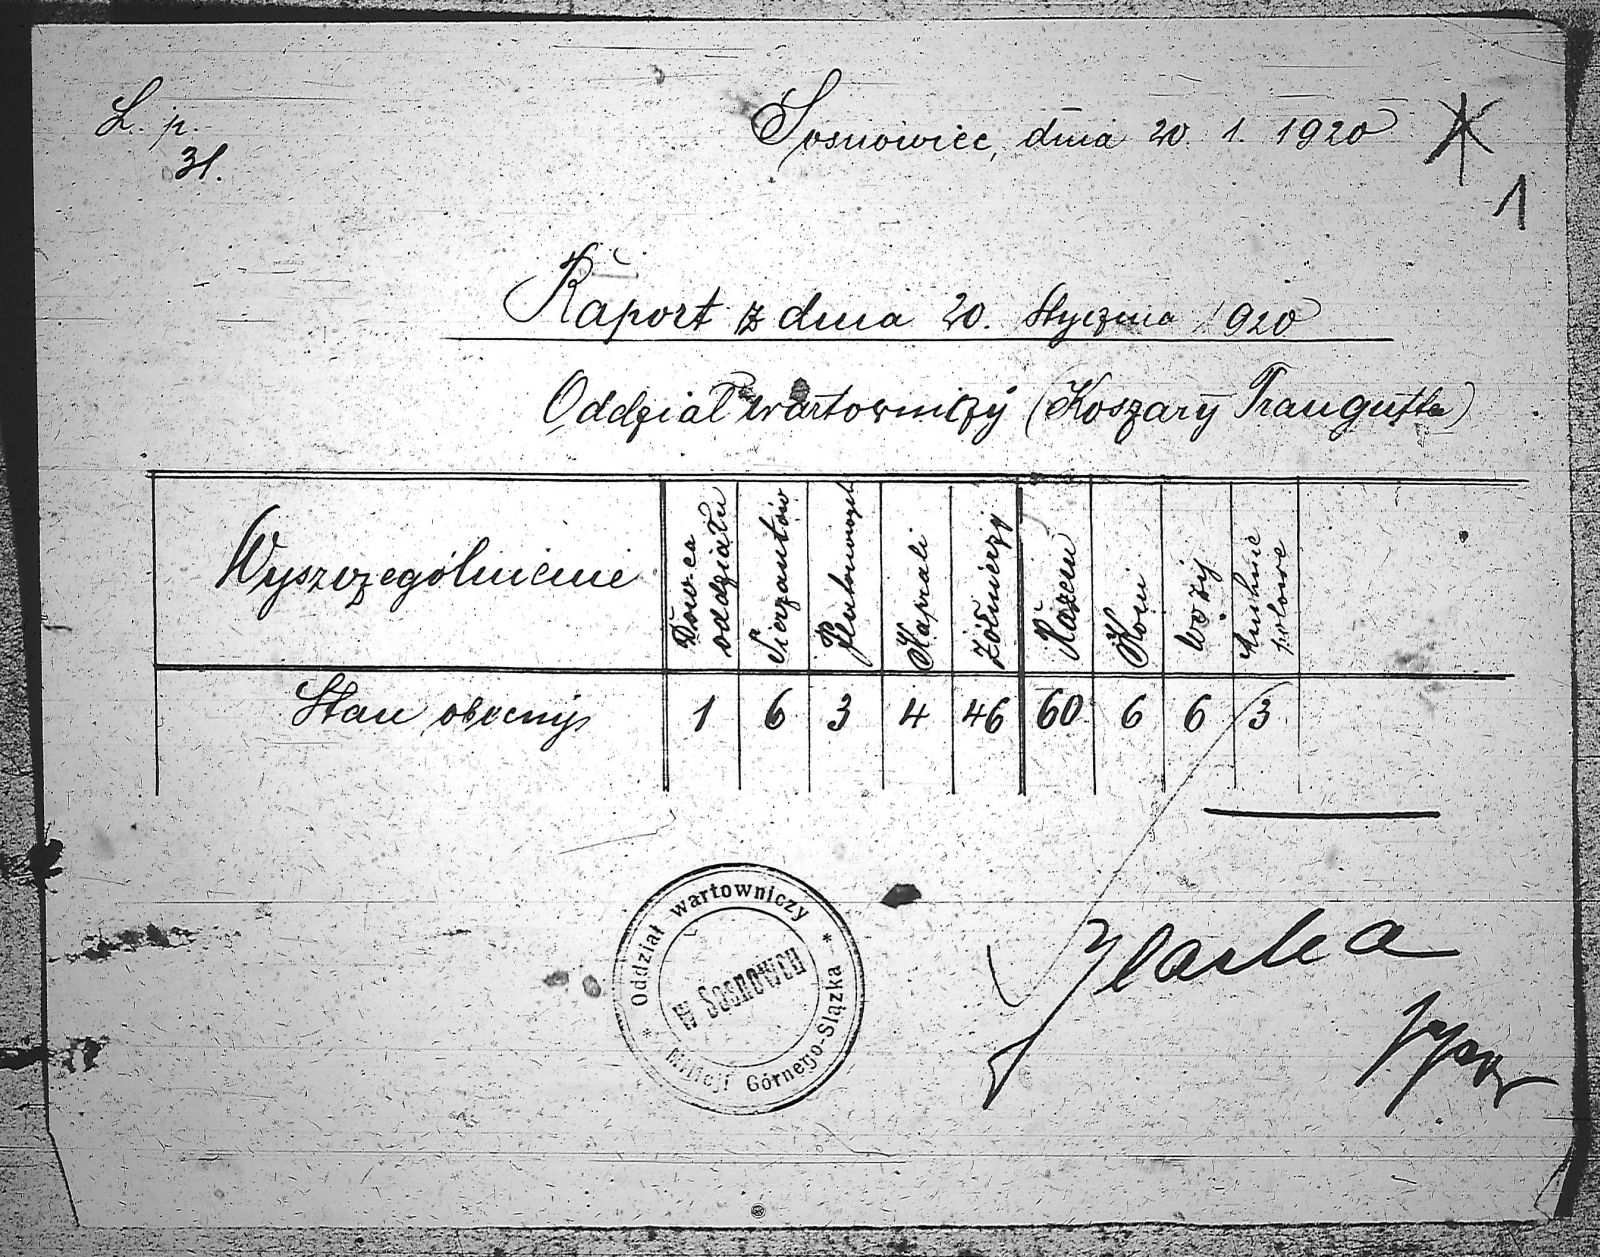 L. p.
31.
Sosnowiec, dnia 20. 1. 1920
1
Raport z dnia 20. Stycznia 1920
Oddział wartowniczy (Koszary Traugutta)
Wyszczególnienie
Dowca oddziału
Sierżantów
Plutonowych
Kaprali
Żółnierzy
Razem
Koni
Wozy
Kuchnie polowe
Stan obecny 1 6 3 4 46 60 6 6 3
* Oddział wartowniczy *
w Sosnowcu
Milicji Górnego-Slązka